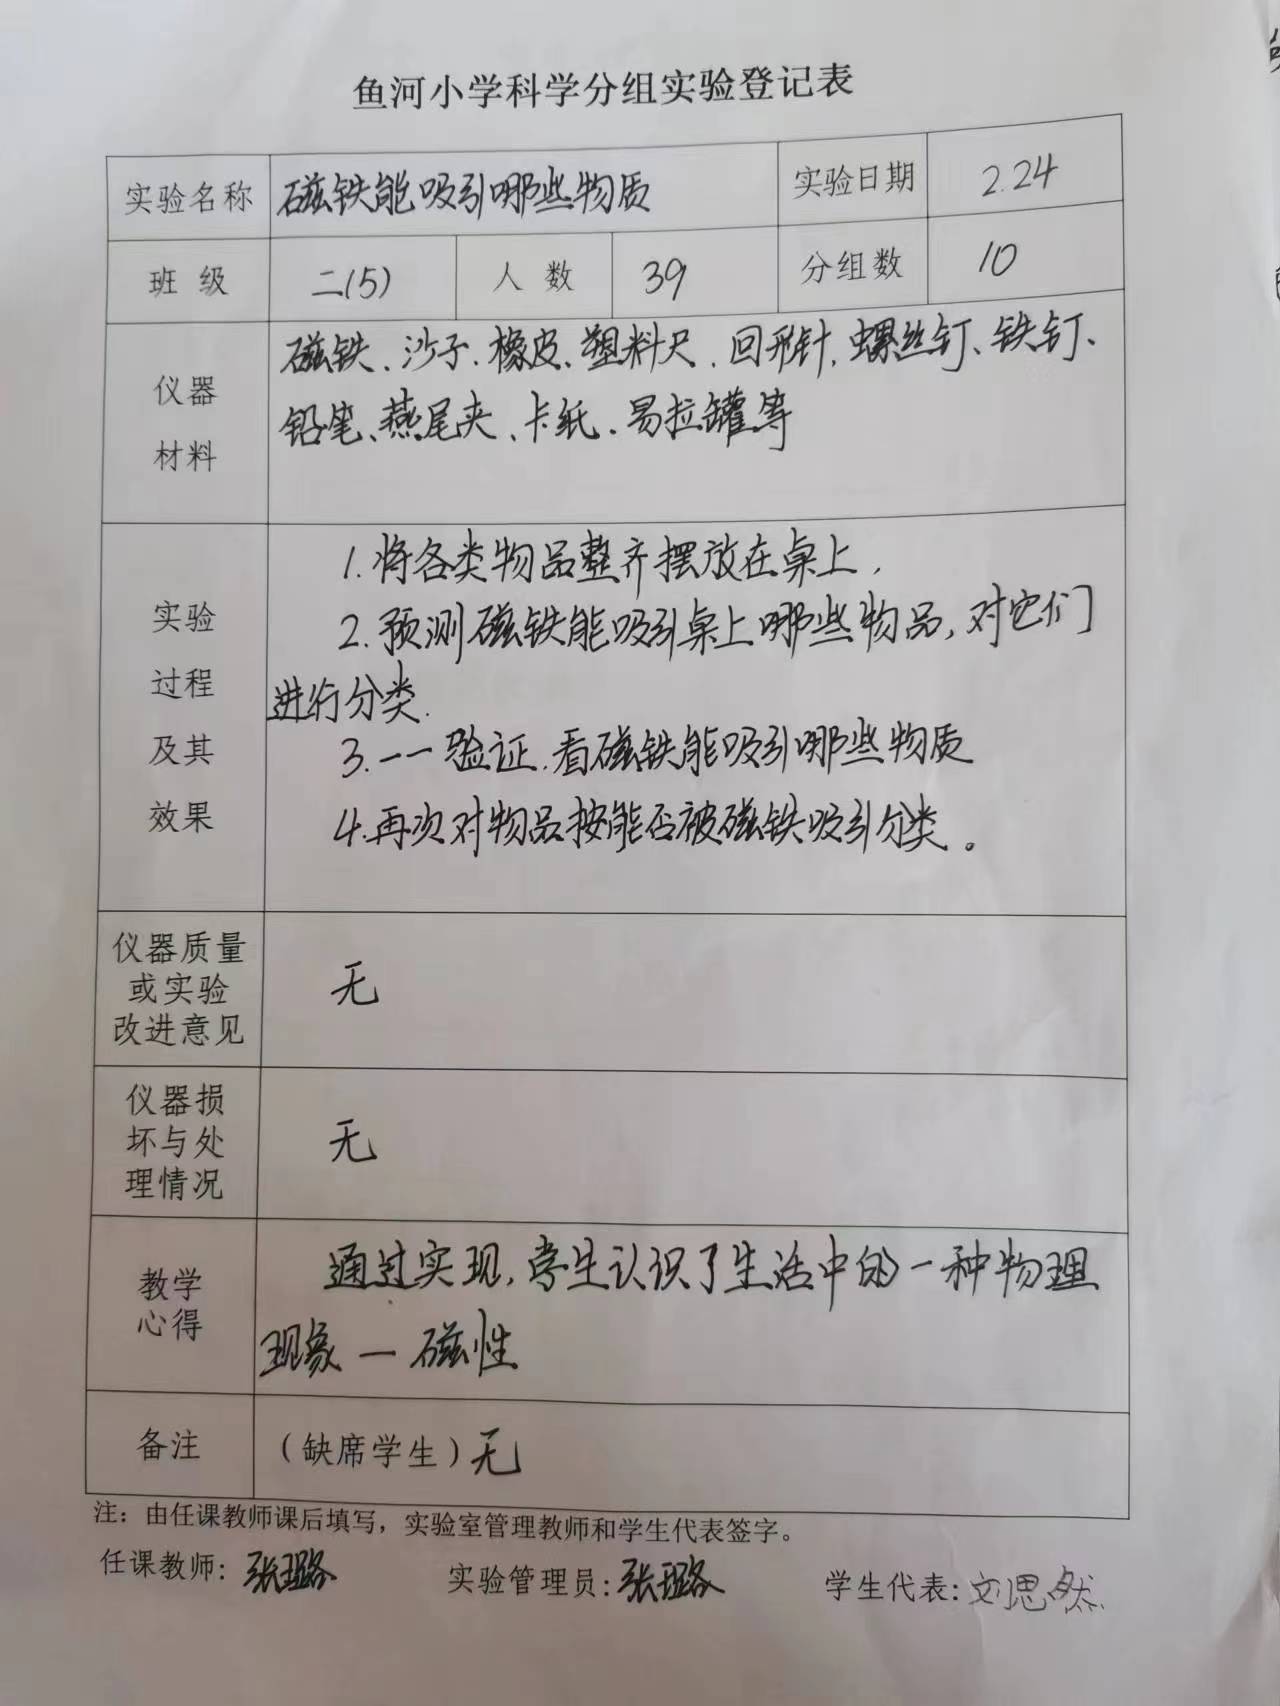 鱼河小学科学分组实验登记表
实验名称 磁铁能吸引哪些物质 实验日期 2.24
班级 二(5) 人数 39 分组数 10
仪器
材料
磁铁、沙子、橡皮、塑料尺、回形针、螺丝钉、铁钉、
铅笔、燕尾夹、卡纸、易拉罐等
实验
过程
及其
效果
1.将各类物品整齐摆放在桌上,
2.预测磁铁能吸引桌上哪些物品,对它们
进行分类.
3.一一验证.看磁铁能吸引哪些物质
4.再次对物品按能否被磁铁吸引分类。
仪器质量
或实验
改进意见
无
仪器损
坏与处
理情况
无
教学
心得
通过实现,学生认识了生活中的一种物理
现象—磁性
备注 (缺席学生)无
注:由任课教师课后填写,实验室管理教师和学生代表签字。
任课教师:张璐 实验管理员:张璐 学生代表:刘思然